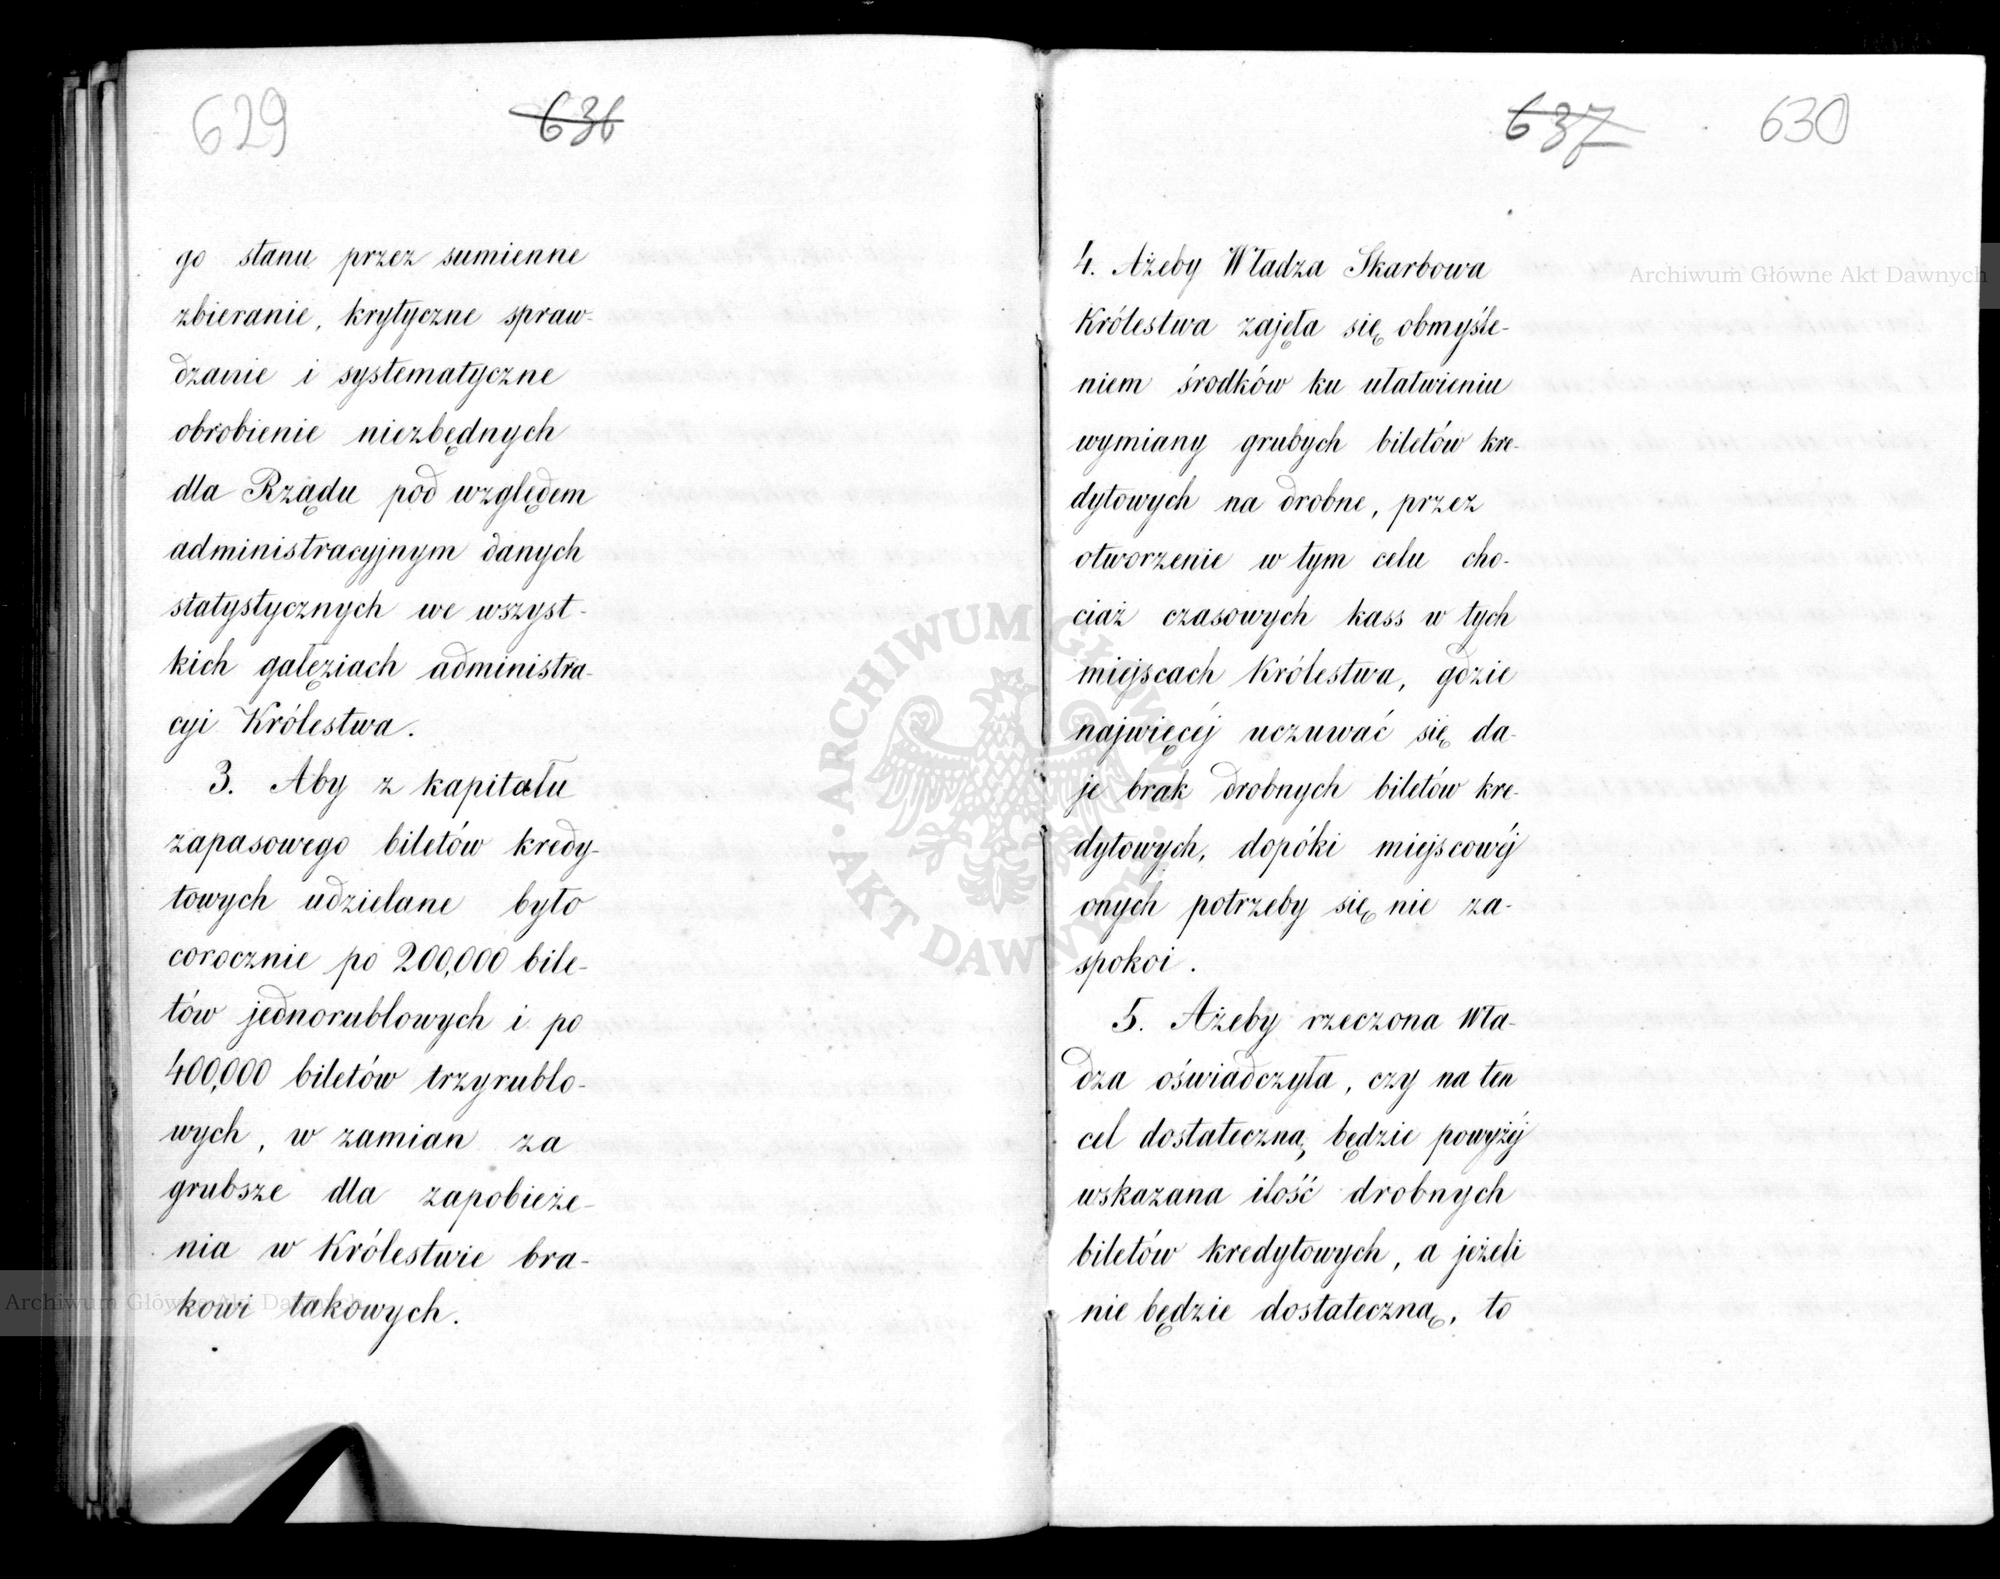 629 636
go stanu przez sumienne
zbieranie, krytyczne spraw-
dzanie i systematyczne
obrobienie niezbędnych
dla Rządu pod względem
administracyjnym danych
statystycznych we wszyst-
kich gałęziach administra-
cyi Królestwa.
3. Aby z kapitału
zapasowego biletów kredy-
towych udzielane było
corocznie po 200,000 bile-
tów jednorublowych i po
400,000 biletów trzyrublo-
wych, w zamian za
grubsze dla zapobieże-
nia w Królestwie bra-
kowi takowych.
637 630
4. Ażeby Władza Skarbowa
Królestwa zajęła się obmyśle-
niem środków ku ułatwieniu
wymiany grubych biletów kre-
dytowych na drobne, przez
otworzenie w tym celu cho-
ciaż czasowych kass w tych
miejscach Królestwa, gdzie
najwięcéj uczuwać się da-
je brak drobnych biletów kre-
dytowych, dopóki miejscowéj
onych potrzeby się nie za-
spokoi.
5. Ażeby rzeczona Wła-
dza oświadczyła, czy na ten
cel dostateczną będzie powyżéj
wskazana ilość drobnych
biletów kredytowych, a jeżeli
nie będzie dostateczną, to
Archiwum Główne Akt Dawnych
Archiwum Główne Akt Dawnych
ARCHIWUM GŁÓWNE
AKT DAWNYCH